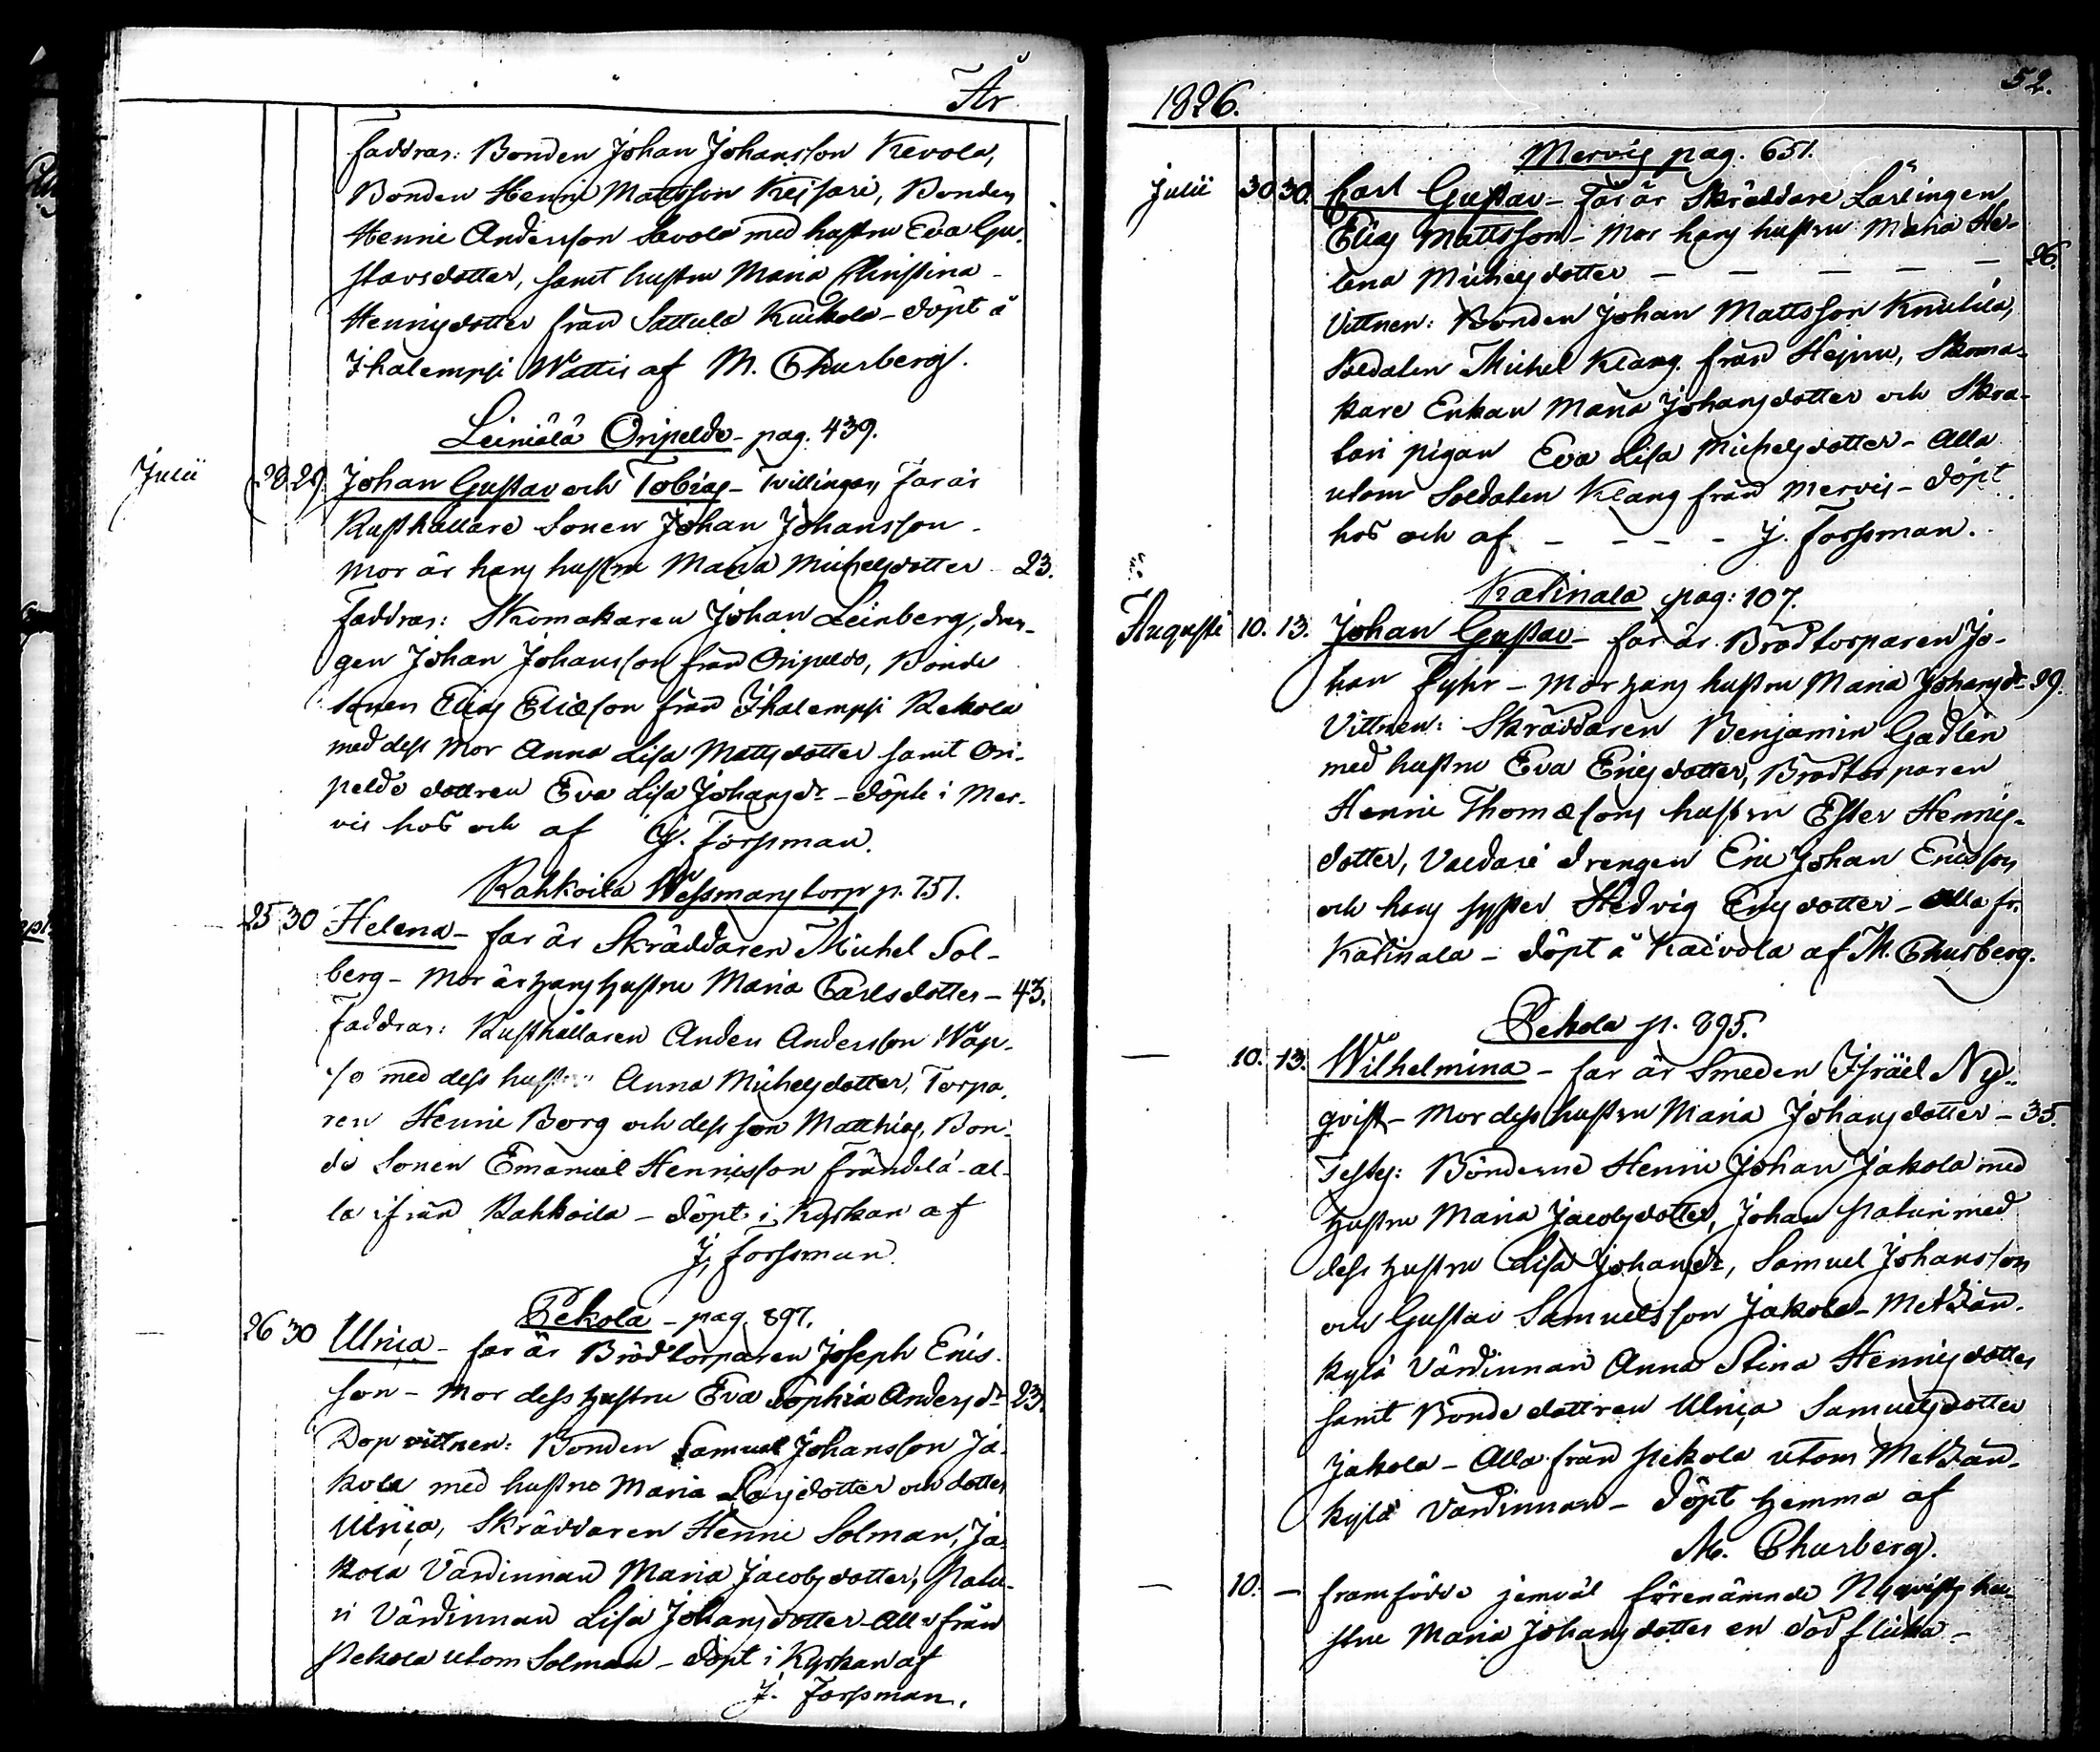 År
Faddrar: Bonden Johan Johansson Kevola,
Bonden Henric Mattsson Keisari, Bonden
Henric Andersson Savola med hustru Eva Gu-
stavsdotter, samt hustru Maria Christina
Henricsdotter från Sattula Kuckola - döpt å
Ihalempi Wattis af M. Churberg.
Leiniälä Oripeldo - pag. 439.
Julii 28 29 Johan Gustav och Tobias - Tvillingar, Far är
Rusthållare Sonen Johan Johansson -
Mor är hans hustru Maria Michelsdotter - 23.
Faddrar: Skomakaren Johan Leinberg, drän-
gen Johan Johansson från Oripeldo, Bonde
sonen Elias Eliæson från Ihalempi Rekola
med dess Mor Anna Lisa Mattsdotter samt Ori-
peldo dottren Eva Lisa Johansdr - döpte i Mer-
vis hos och af J. Forssman.
Rahkoila Wessmanstorp p. 751.
25 30 Helena - far är Skräddaren Michel Sol-
berg - Mor är hans hustru Maria Carlsdotter - 43.
Faddrar: Rusthållaren Anders Andersson Wäp-
sä med dess hustru Anna Michelsdotter, Torpa-
ren Henric Borg och dess son Matthias, Bon-
de Sonen Emanuel Henricsson Frändelä - al-
la ifrån Rahkoila - döpt i Kyrkan af
J. Forssman
Pekola - pag. 897.
26 30 Ulrica - far är Brödtorparen Joseph Erics-
son - Mor dess hustru Eva Sophia Andersdr 23.
Dop vittnen: Bonden Samuel Johansson Ja-
kola med hustru Maria Larsdotter och dotter
Ulrica, Skräddaren Henric Solman, Ja-
kola Värdinnan Maria Jacobsdotter, Patu-
ri Värdinnan Lisa Johansdotter - Alla från
Pekola utom Solman - döpt i Kyrkan af
J. Forssman.
1826.
52.
Mervis pag. 651.
Julii 30 30. Carl Gustav - Far är Skräddare Lärlingen
Elias Mattsson - Mor hans hustru Maria He-
lena Michelsdotter - - - - - 26.
Vittnen: Bonden Johan Mattsson Knutila,
Soldaten Michel Klang från Hejnu, Skoma-
kare Enkan Maria Johansdotter och Skra-
tari pigan Eva Lisa Michelsdotter - Alla
utom Soldaten Klang från Mervis - döpt
hos och af - - - - J. Forssman.
Katinala pag: 107.
Augusti 10. 13. Johan Gustav - far är Brödtorparen Jo-
han Fyhr - Mor hans hustru Maria Johansdr 29.
Vittnen: Skräddaren Benjamin Gadlén
med hustru Eva Ericsdotter, Brödtorparen
Henric Thomæsons hustru Ester Henrics-
dotter, Valdari drengen Eric Johan Ericsson
och hans syster Hedvig Ericsdotter - Alla fr.
Katinala - döpt å Kaivola af M. Churberg.
Pekola p. 895.
— 10. 13. Wilhelmina - far är Smeden Israël Ny-
qvist - Mor dess hustru Maria Johansdotter - 35.
Testes: Bönderne Henric Johan Jakola med
hustru Maria Jacobsdotter, Johan Paturi med
dess hustru Lisa Johansdr, Samuel Johansson
och Gustav Samuelsson Jakola - Metzän-
kylä Värdinnan Anna Stina Henricsdotter
samt Bonde dottren Ulrica Samuelsdotter
Jakola - Alla från Pekola utom Metzän-
kylä Värdinnan - döpt hemma af
M. Churberg.
— 10. — framfödde jemväl förenämnde Nyqvists hu-
stru Maria Johansdotter en död flicka -